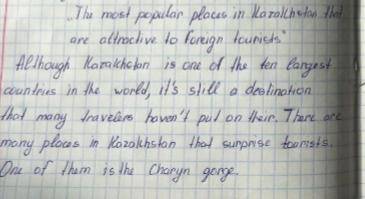 „The most popular places in Kazakhstan that
are attractive to foreign tourists"
Although Kazakhstan is one of the ten largest
countries in the world, it's still a destination
that many travelers haven't put on their. There are
many places in Kazakhstan that surprise tourists.
One of them is the Charyn gorge.